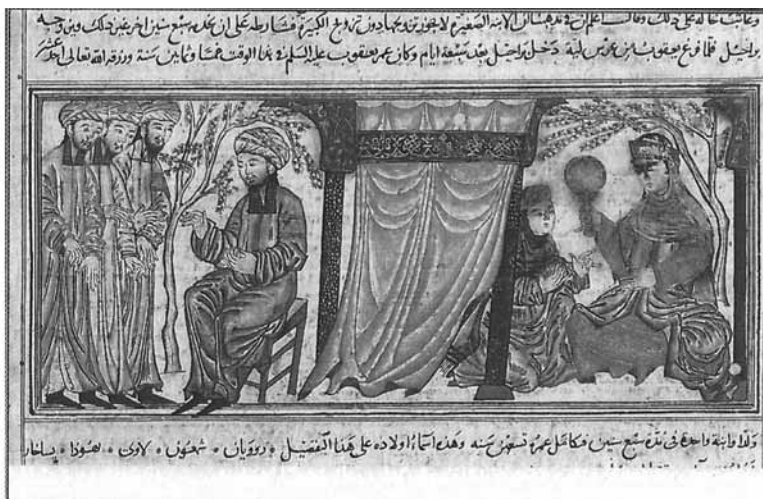 وعاتب خاله على ذلك وقال اعلم ان في مذهبنا ان الابنة الصغيرة لا يجوز تزويجها دون تزويج الكبيرة فشارطه على ان يخدمه سبع سنين اخر عن ذلك وبن وجه
براحيل فلما فرغ يعقوب من عرس لية دخل براحيل بعد سبعة ايام وكان عمر يعقوب عليه السلم في هذا الوقت خمسا وثمانين سنة ورزقه الله تعالى احد عشر
ولدا وابنة واحدة في مدة سبع سنين فكامل عمره تسعين سنه وهذه اسماء اولاده على هذا التفصيل روويان شمعون لاوى يهوذا يساخار